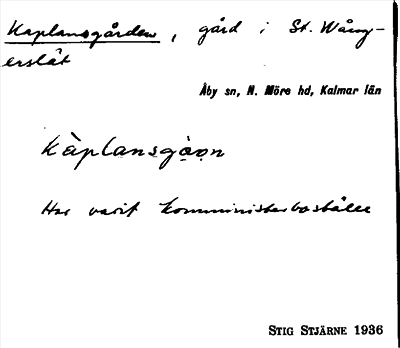 Kaplansgården, gård i St. Wång-
erslät
Åby sn, N. Möre hd, Kalmar län
kàplansgò̜ọn
Har varit komministerboställe
STIG STJÄRNE 1936